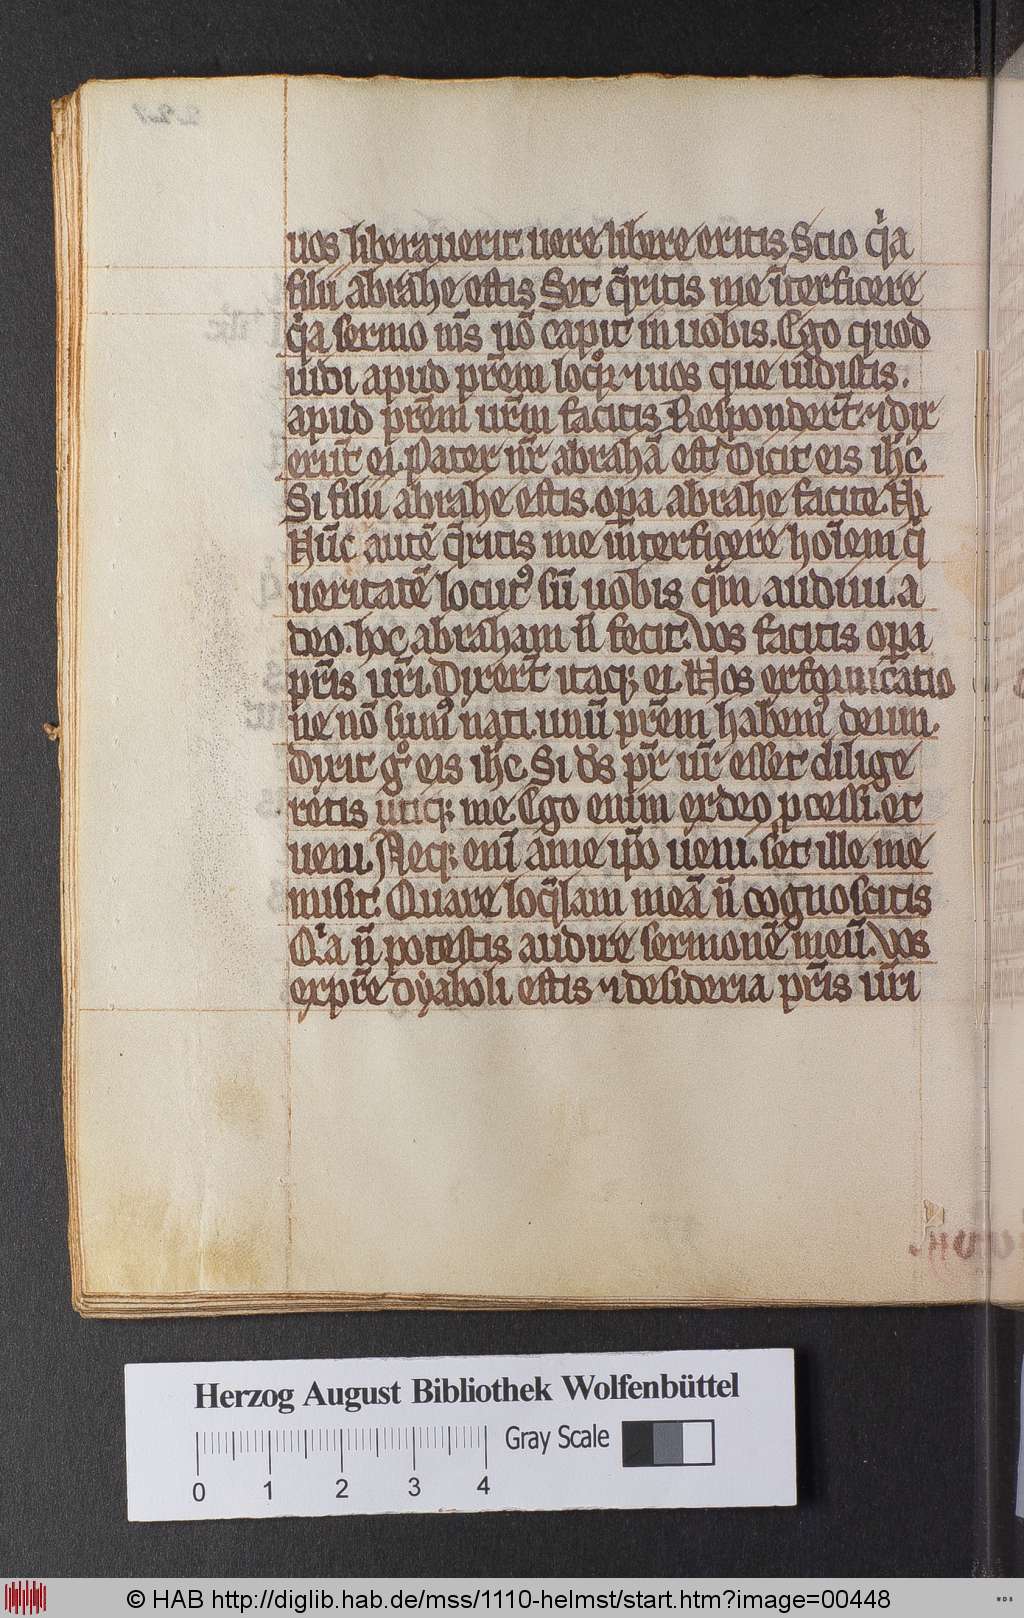 uos liberauerit. uere libere eritis. Scio qͥa
filii abrahe estis. Set q̄ritis me īterficere
qͥa sermo ms̄ nō capit in uobis. Ego quod
uidi apud pr̄em loqͦr ⁊ uos que uidistis.
apud pr̄em ur̄m facitis. Responder̄t. ⁊ dix
erūt ei. Pater ur̄ abrahā est. Dicit eis ih̄c.
Si filii abrahe estis. opa abrahe facite.
Nūc autē q̄ritis me interfigere hoīem q̄
ueritatē locutꝰ sū uobis qm̄ audiui. a
deo. hoc abraham n̄ fecit. Vos facitis opa
pr̄is ur̄i. Dixer̄t itaqꝫ ei. Nos exfornicatio
ne nō sumꝰ nati. unū pr̄em habemꝰ deum.
Dixit gͦ eis ih̄c. Si ds̄ pr̄ ur̄ esset dilige
retis utiqꝫ me. Ego enim exdeo ꝓcessi. et
ueni. Neqꝫ enī ame ip̄o ueni. set ille me
misit. Quare loq̄lam meā n̄ cognoscitis
Qͥa n̄ potestis audire sermonē meū. Vos
expr̄e dyaboli estis ⁊ desideria pr̄is ur̄i
Herzog August Bibliothek Wolfenbüttel
Gray Scale
0 1 2 3 4
© HAB http://diglib.hab.de/mss/1110-helmst/start.htm?image=00448